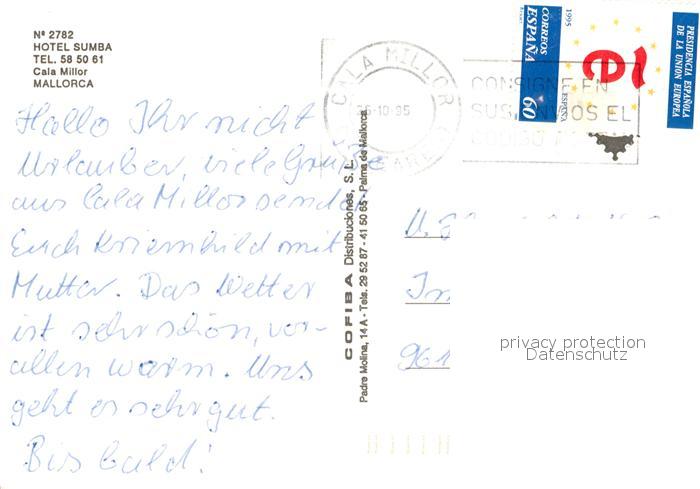 Nº 2782
HOTEL SUMBA
TEL. 58 50 61
Cala Millor
MALLORCA
Hallo Ihr nicht
Urlauber, viele Grüße
aus Cala Millor sendet
Euch Kriemhild mit
Mutter. Das Wetter
ist sehr schön, vor-
allem warm. Uns
geht es sehr gut.
Bis bald!
COFIBA Distribuciones, S. L.
Padre Molina, 14 A - Tels. 29 52 87 - 41 50 65 - Palma de Mallorca
CALA MILLOR
-10-95
CONSIGNE EN
SUS ENVIOS EL
CODIGO
1995
CORREOS
ESPAÑA
60
ESPAÑA
ẽ
PRESIDENCIA ESPAÑOLA
DE LA UNION EUROPEA
961
privacy protection
Datenschutz